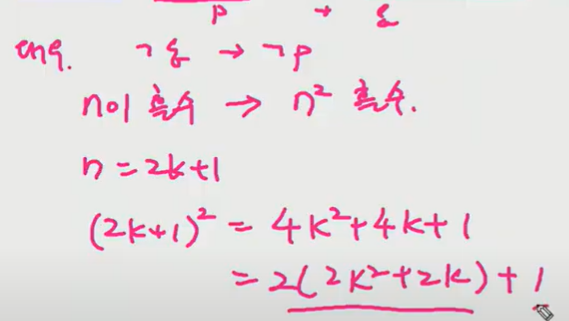 p → q
대우. ¬q → ¬p
n이 홀수 → n² 홀수.
n = 2k+1
(2k+1)² = 4k²+4k+1
= 2(2k²+2k)+1